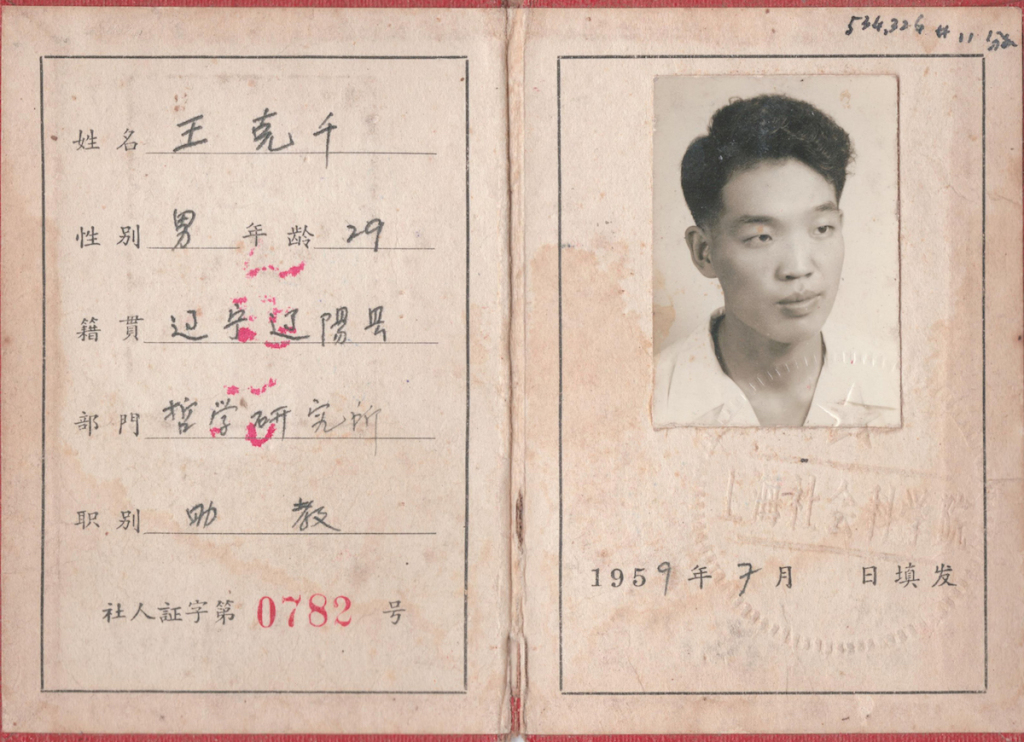 姓名 王克千
性别 男 年龄 29
籍貫 辽宁辽陽县
部門 哲学研究所
职别 助教
社人証字第 0782 号
534,324 # 11
上海社会科学院
1959年7月 日填发